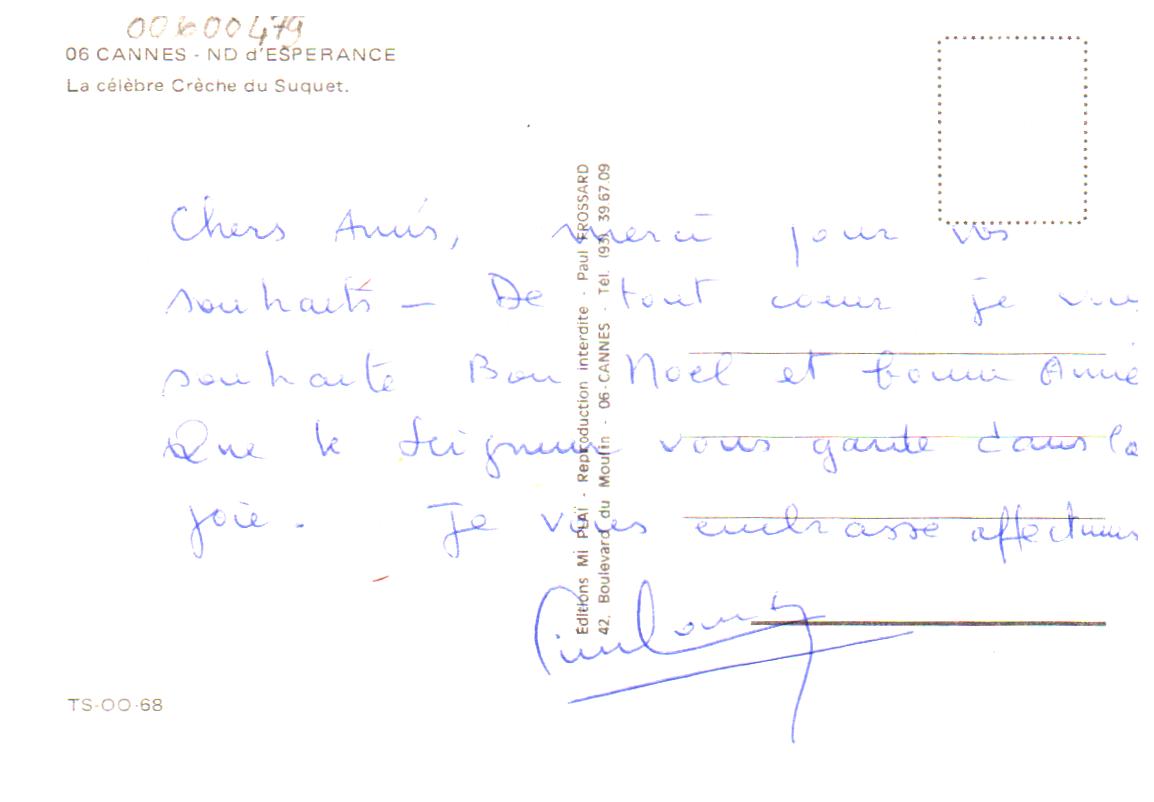 00600479
06 CANNES - ND d'ESPERANCE
La célèbre Crèche du Suquet.
Chers Amis, merci pour vos
souhaits - De tout coeur je vous
souhaite Bon Noël et bonne Année
Que le Seigneur vous garde dans la
joie. Je vous embrasse affectueus
Editions Mi PLAÏ - Reproduction interdite - Paul FROSSARD
42, Boulevard du Moulin - 06-CANNES - Tél. (93) 39 67.09
TS-00-68